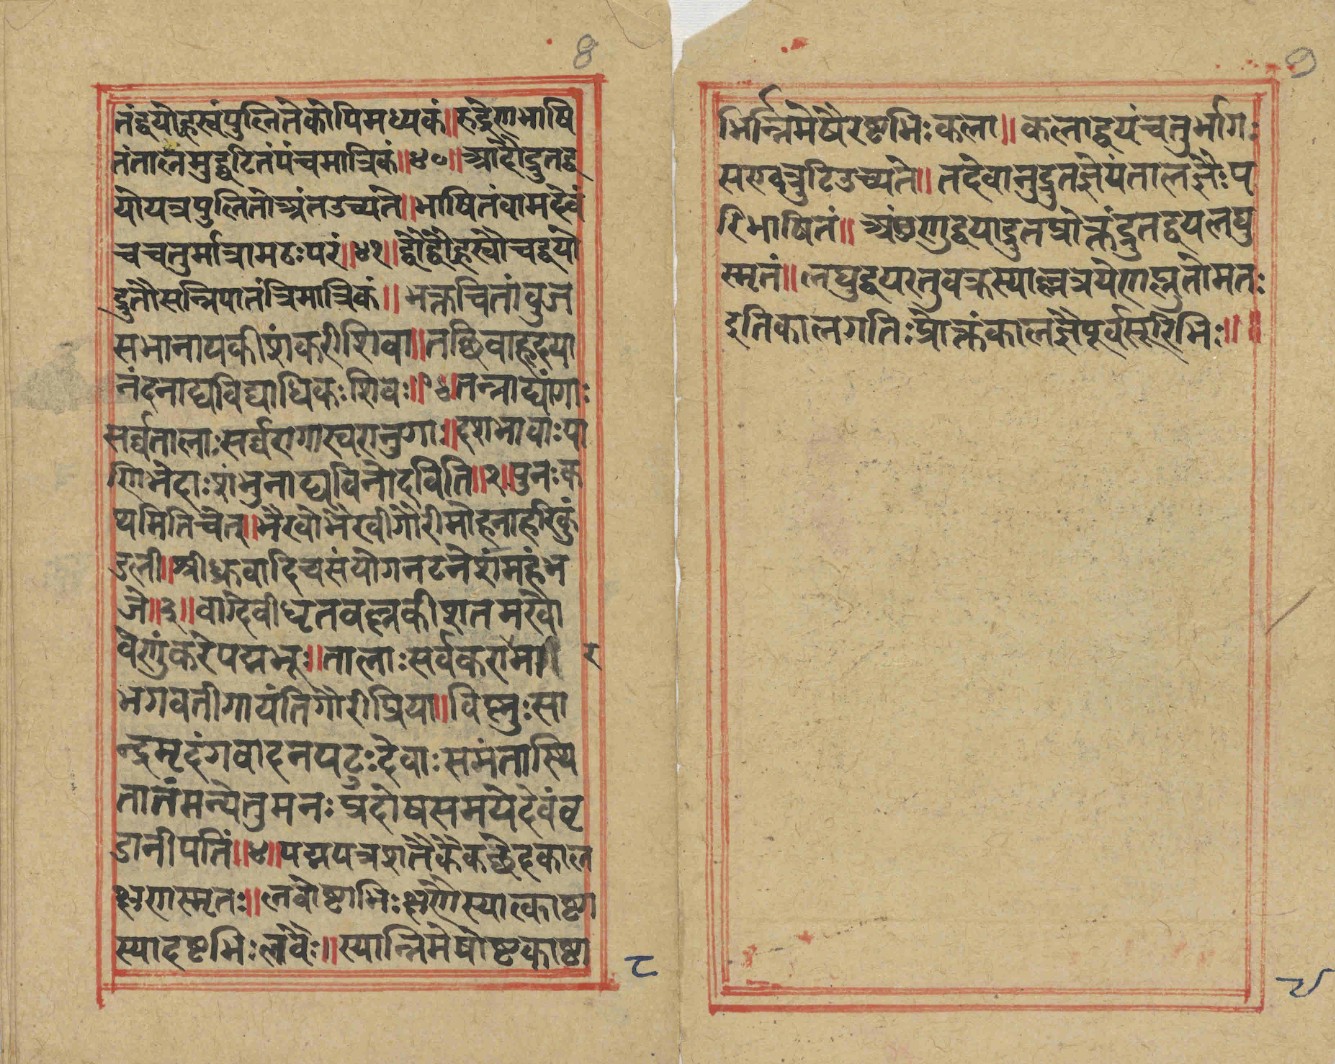 8
तंद्वयोह्रस्वंपुलितेकोपिमध्यकं॥रुद्रेणभाषि
तंतालमुद्घटितंपंचमात्रिकं॥४०॥आदौद्रुतद्व
योयत्रपुलितोअंतउच्यते॥भाषितंवामदेवं
चचतुर्मात्रामठःपरं॥४१॥द्वौद्वौह्रस्वौचद्वयो
द्रुतौसन्निपातंत्रिमात्रिकं॥
नंदनाद्यविद्याधिकःशिवः॥
सर्वतालाःसर्वरागास्वरानुगाः॥दशभावाःपा
णिभेदाःशंभुनाद्यविनोदविति॥२॥पुनःक
थमितिचेत्॥भैरवोभैरवीगौरीमोहनाहरिकुं
डली॥श्रीध्रुवादित्यसंयोगनटनेशंमहंभ
जे॥३॥वाग्देवीधृतवल्लकीशतमखो
वेणुंकरेपद्मभूः॥तालाःसर्वकरामा॥ र
भगवतीगायंतिगौरीप्रिया॥विष्नुःसा
न्द्रमृदंगवादनपटुःदेवाःसमंतास्थि
तातंमन्येतुमनःप्रदोषसमयेदेवंवृ
डानीपतिं॥४॥पद्मपत्रशतैकैकछेदकाल
क्षणस्मृतः॥लवोष्टाभिःक्षणैस्यात्काष्टा
स्यादष्टभिःलवैः॥स्यान्निमेषोष्टकाष्टा
८
9
भिर्न्निमेषैरष्टभिःकला॥कलाद्वयंचतुर्भागः
सएवत्रुटिउच्यते॥तदेवानुद्रुतज्ञेयंतालज्ञैःप
रिभाषितं॥अणुद्वयाद्रुतप्रोक्तंद्रुतद्वयलघु
स्मृतं॥लघुद्वयस्तुवक्रस्याल्लत्रयेणप्लुतोमतः
इतिकालगतिःप्रोक्तंकालज्ञैपूर्वसूरिभिः॥॥
९